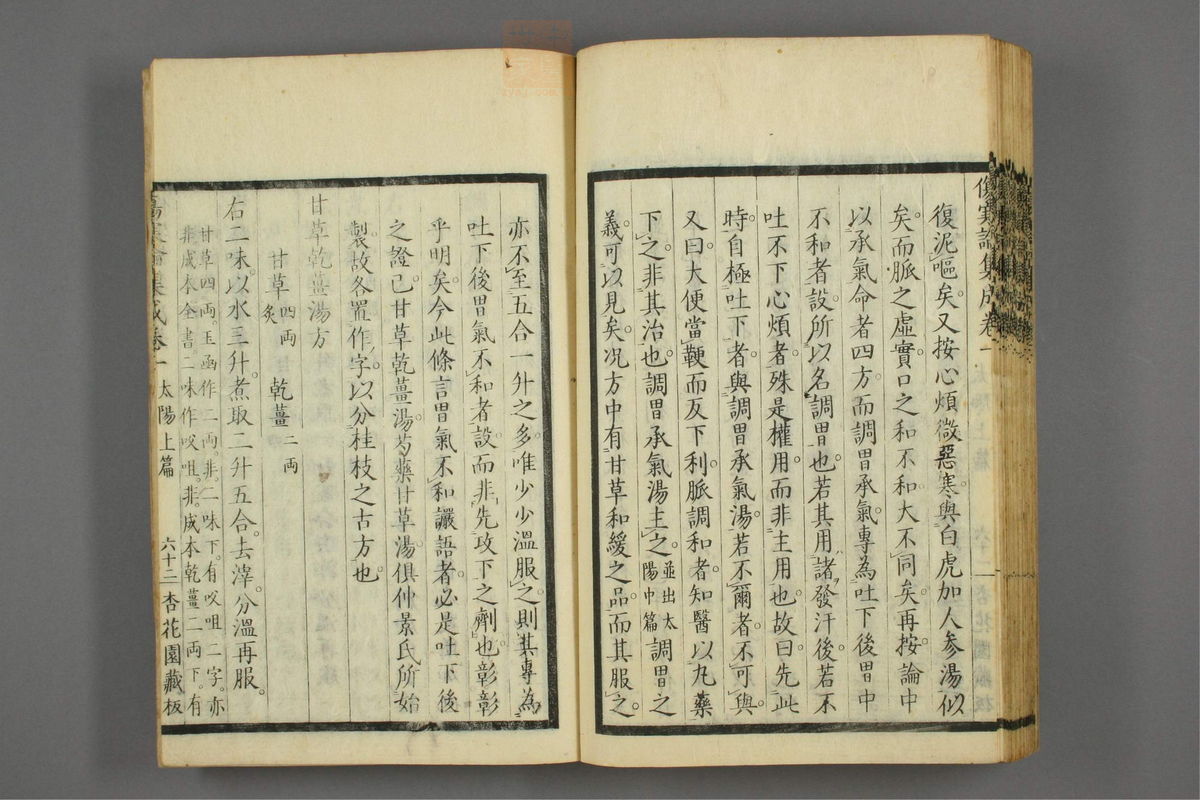 傷寒論集成卷一
復泥嘔矣。又按心煩微惡寒與白虎加人參湯似
矣。而脈之虛實口之和不和大不同矣。再按。論中
以承氣命者四方。而調胃承氣。專為吐下後胃中
不和者設。所以名調胃也。若其用諸發汗後。若不
吐不下心煩者。殊是權用。而非主用也。故曰先此
時自極吐下者。與調胃承氣湯。若不爾者。不可與。
又曰大便當鞕而反下利。脈調和者。知醫以丸藥
下之。非其治也。調胃承氣湯主之。並出太陽中篇調胃之
義可以見矣。况方中有甘草和緩之品。而其服之。
亦不至五合一升之多。唯少少溫服之。則其專為
吐下後胃氣不和者設。而非先攻下之劑也彰彰
乎明矣。今此條言胃氣不和讝語者。必是吐下後
之證已。甘草乾薑湯。芍藥甘草湯。俱仲景氏所始
製。故各置作字。以分桂枝之古方也。
甘草乾薑湯方
甘草四両炙 乾薑二両
右二味。以水三升。煮取二升五合。去滓。分溫再服。
甘草四両。玉函作二両。非。二味下。有㕮咀二字。亦
非。成本全書。二味作㕮咀。非。成本乾薑二両下。有
傷寒論集成卷一 太陽上篇 六十二 杏花園藏板